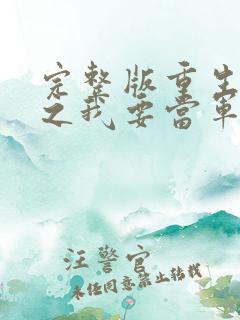 完整版重生
之我要當軍
汪警官
未经同意禁止转载